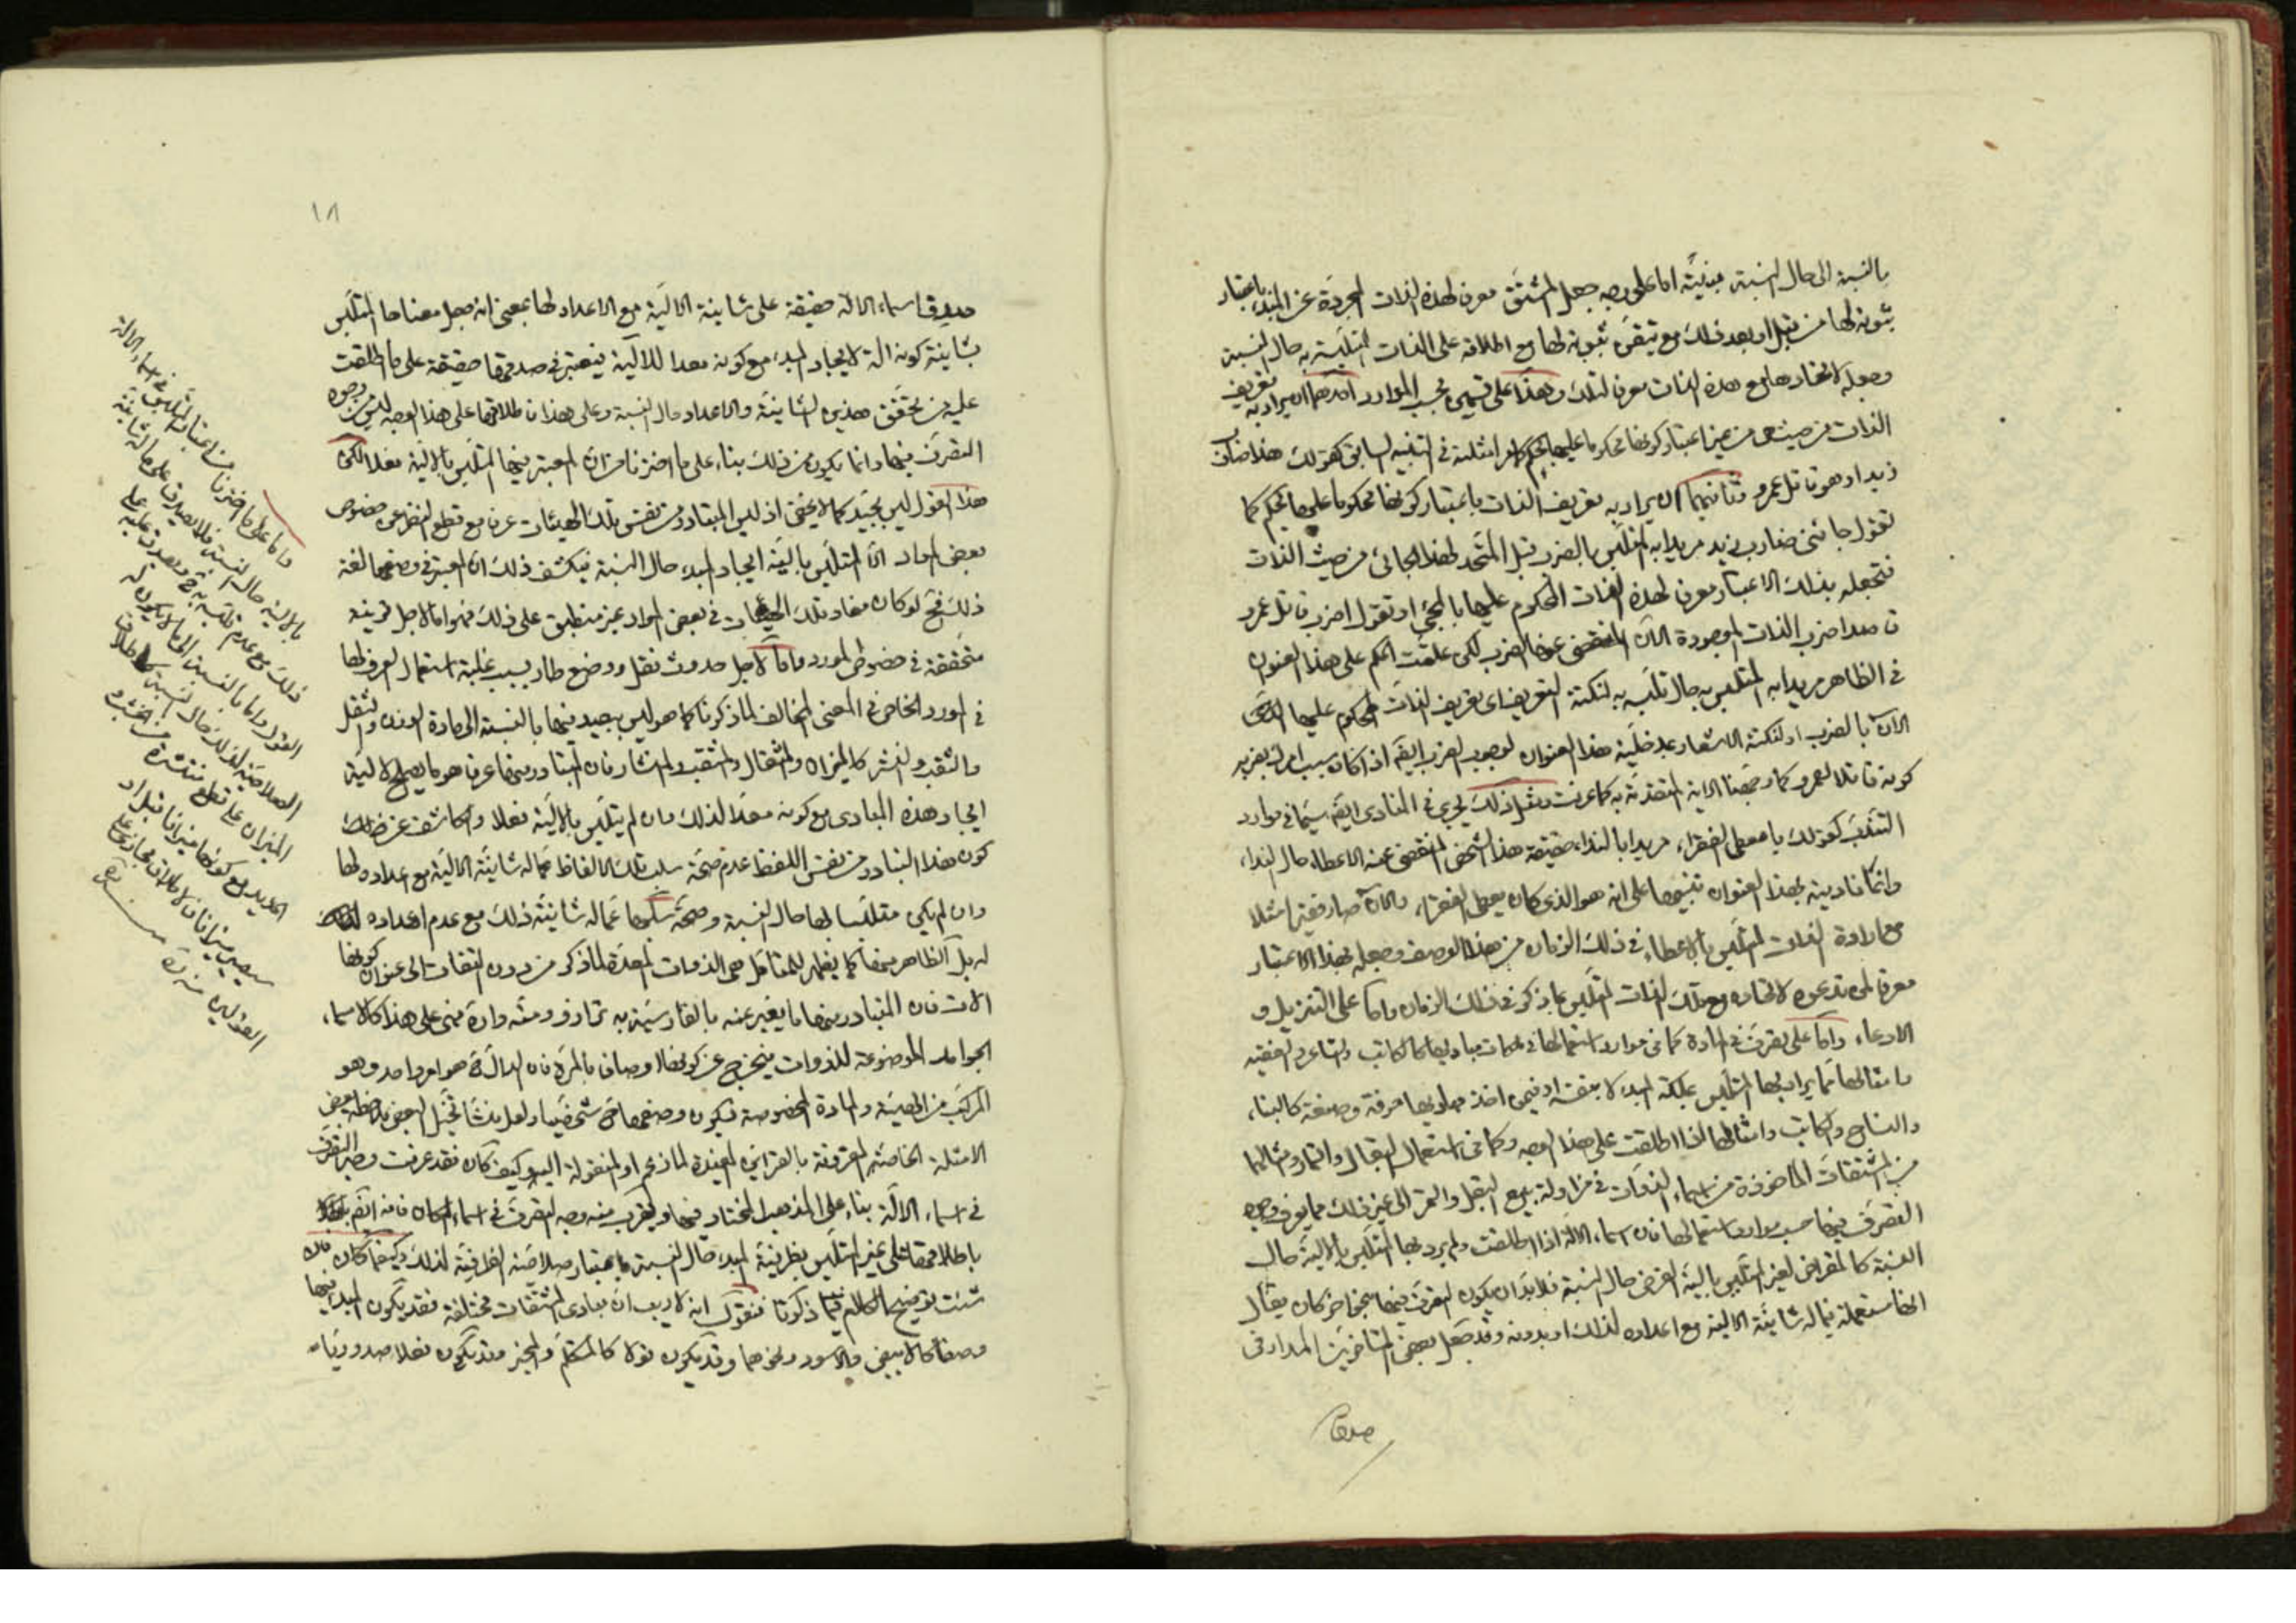 بالنسبة الى حال النسبة مبنيّة اما على وجه جعل المشتق معرفا لهذه الذات المجردة عن المبدء باعتبار
ثبوته لها من قبل او بعد ذلك مع تيقن ثبوته لها مع اطلاقه على الذات المتلبسة به حال النسبة
وجعله لاتحادها مع هذه الذات معرفا لتلك وهذا على قسمين بحسب الموارد احدهما ان يراد به تعريف
الذات من حيث هي من غير اعتبار كونها محكوما عليها بحكم كامر امثلته في التنبيه السابق كقولك هذا ضارب
زيد او هو قاتل عمرو وثانيهما ان يراد به تعريف الذات باعتبار كونها محكوما عليها بحكم كما
تقول جائني ضارب زيد مريدا به المتلبس بالضرب قبل المتحد لهذا الجائي من حيث الذات
فتجعله بذلك الاعتبار معرفا لهذه الذات المحكوم عليها بالمجئ او تقول اضرب قاتل عمرو
قاصدا ضرب الذات الموجودة الآن المنقضي عنها الضرب لكن علقت الحكم على هذا العنوان
في الظاهر مريدا به المتلبس به حال تلبسه به لنكتة التعريف اى تعريف الذات المحكوم عليها
الآن بالضرب او لنكتة الاشعار بمدخلية هذا العنوان لوجوب الضرب ايضا اذا كان سبب امرك بضربه
كونه قاتلا لعمرو كما وجهنا الاية المتقدمة به كما عرفت ومثل ذلك يجرى في المنادى ايضا سيما في موارد
التندب كقولك يا معطى الفقراء مريدا بالنداء حقيقة هذا الشخص المنقضى عنه الاعطاء حال النداء
وانما ناديته بهذا العنوان تنبيها على انه هو الذى كان يعطى الفقراء والآن صار فقيرا مثلا
مع ارادة الذات المتلبس بالاعطاء في ذلك الزمان من هذا الوصف وجعله بهذا الاعتبار
معرفا لمن تدعوه لاتحاده مع تلك الذات المتلبس بما ذكر في ذلك الزمان واما على التنزيل و
الادعاء واما على تصرف في المادة كما في موارد استعمالها في ملكات مباديها كالكاتب والشاعر والفقيه
وامثالها مما يراد بها المتلبس بملكة المبدء لا بنفسه او فيمن اخذ مباديها حرفة وصنعة كالبناء
والنساج والكاتب وامثالها اذا اطلقت على هذا الوجه وكما في استعمال البقال والتمار ومثالهما
من المشتقات الماخوذة من اسماء الذوات في مزاولة بيع البقل والتمر الى غير ذلك مما يعرف وجه
التصرف فيها حسب موارد استعمالها فان اسماء الالة اذا اطلقت ولم يرد بها المتلبس بالالية حال
النسبة كالمقراض لغير المتلبس بالية القرض حال النسبة فلا بد ان يكون التصرف فيها بنحو اخر كان يقال
انها مستعملة فيما له شانية الالية مع اعداده لذلك او بدونه وقد جعل بعض المتاخرين المدار في
صدق
١٨
صدق اسماء الالة حقيقة على شانية الالية مع الاعداد لها بمعنى انه جعل معناها المتلبس
بشانية كونه الة لايجاد المبدء مع كونه معدا للالية فيعتبر في صدقها حقيقة على ما اطلقت
عليه من تحقق هذين الشانية والاعداد حال النسبة وعلى هذا فاطلاقها على هذا الوجه ليس من وجوه
التصرف فيها وانما يكون من ذلك بناء على ما اخترنا من ان المعتبر فيها المتلبس بالالية فعلا لكن
هذا القول ليس بجيد كما لا يخفى اذ ليس المتبادر من نفس تلك الهيئات عرفا مع قطع النظر عن خصوص
بعض المواد الا المتلبس بالية ايجاد المبدء حال النسبة فيكشف ذلك ان المعتبر في وضعها لغة
ذلك فح لو كان مفاد تلك الهيئات في بعض المواد غير منطبق على ذلك فهو اما لاجل قرينة
متحققة في خصوص المورد واما لاجل حدوث نقل ووضع طار بسبب غلبة استعمال العرف لها
في المورد الخاص في المعنى المخالف لما ذكرنا كما هو ليس ببعيد فيها بالنسبة الى مادة الوزن والثقل
والثقب والنشر كالميزان والمثقال والمثقب والمنشار فان المتبادر منها عرفا هو ما يصلح لالية
ايجاد هذه المبادى مع كونه معدا لذلك وان لم يتلبس بالالية فعلا والكاشف عن ذلك
كون هذا التبادر من نفس اللفظ عدم صحة سلب تلك الالفاظ عما له شانية الالية مع اعداده لها
وان لم يكن متلبسا لها حال النسبة وصحة سلبها عما له شانية ذلك مع عدم اعداده
له بل الظاهر منها كما يظهر للمتامل هي الذوات المعدة لما ذكر من دون التفات الى عنوان كونها
الات فان المتبادر منها ما يعبر عنه بالفارسية به ترازو ومته واره فهي على هذا كالاسماء
الجوامد الموضوعة للذوات فيخرج عن كونها اوصافا بالمرة فان الدال هو امر واحد وهو
المركب من الهيئة والمادة المخصوصة فيكون وضعها شخصيا ولعل منشا تخيل البعض ملاحظة بعض
الامثلة الخاصة المقترنة بالقرائن المفيدة لما زعم او المنقولة اليه وكيف كان فقد عرفت وجه التصرف
في اسماء الالة بناء على المذهب المختار فيها ويقرب منه وجه التصرف في اسماء المكان فانه
باطلاقها على غير المتلبس بظرفية المبدء حال النسبة باعتبار صلاحيته الظرفية لذلك وكيفما كان فان
شئت توضيح الكلام فيما ذكرنا فنقول انه لا ريب ان مبادى المشتقات مختلفة فقد يكون المبدء فيها
وصفا كالابيض والاسود ونحوهما وقد يكون قولا كالمتكلم والمخبر وقد يكون فعلا صدوريا
واما على ما اخترنا من اعتبار التلبس في اسماء الالة
بالالية حال النسبة فلا يصدق على ما له شانية
ذلك مع عدم تلبسه به